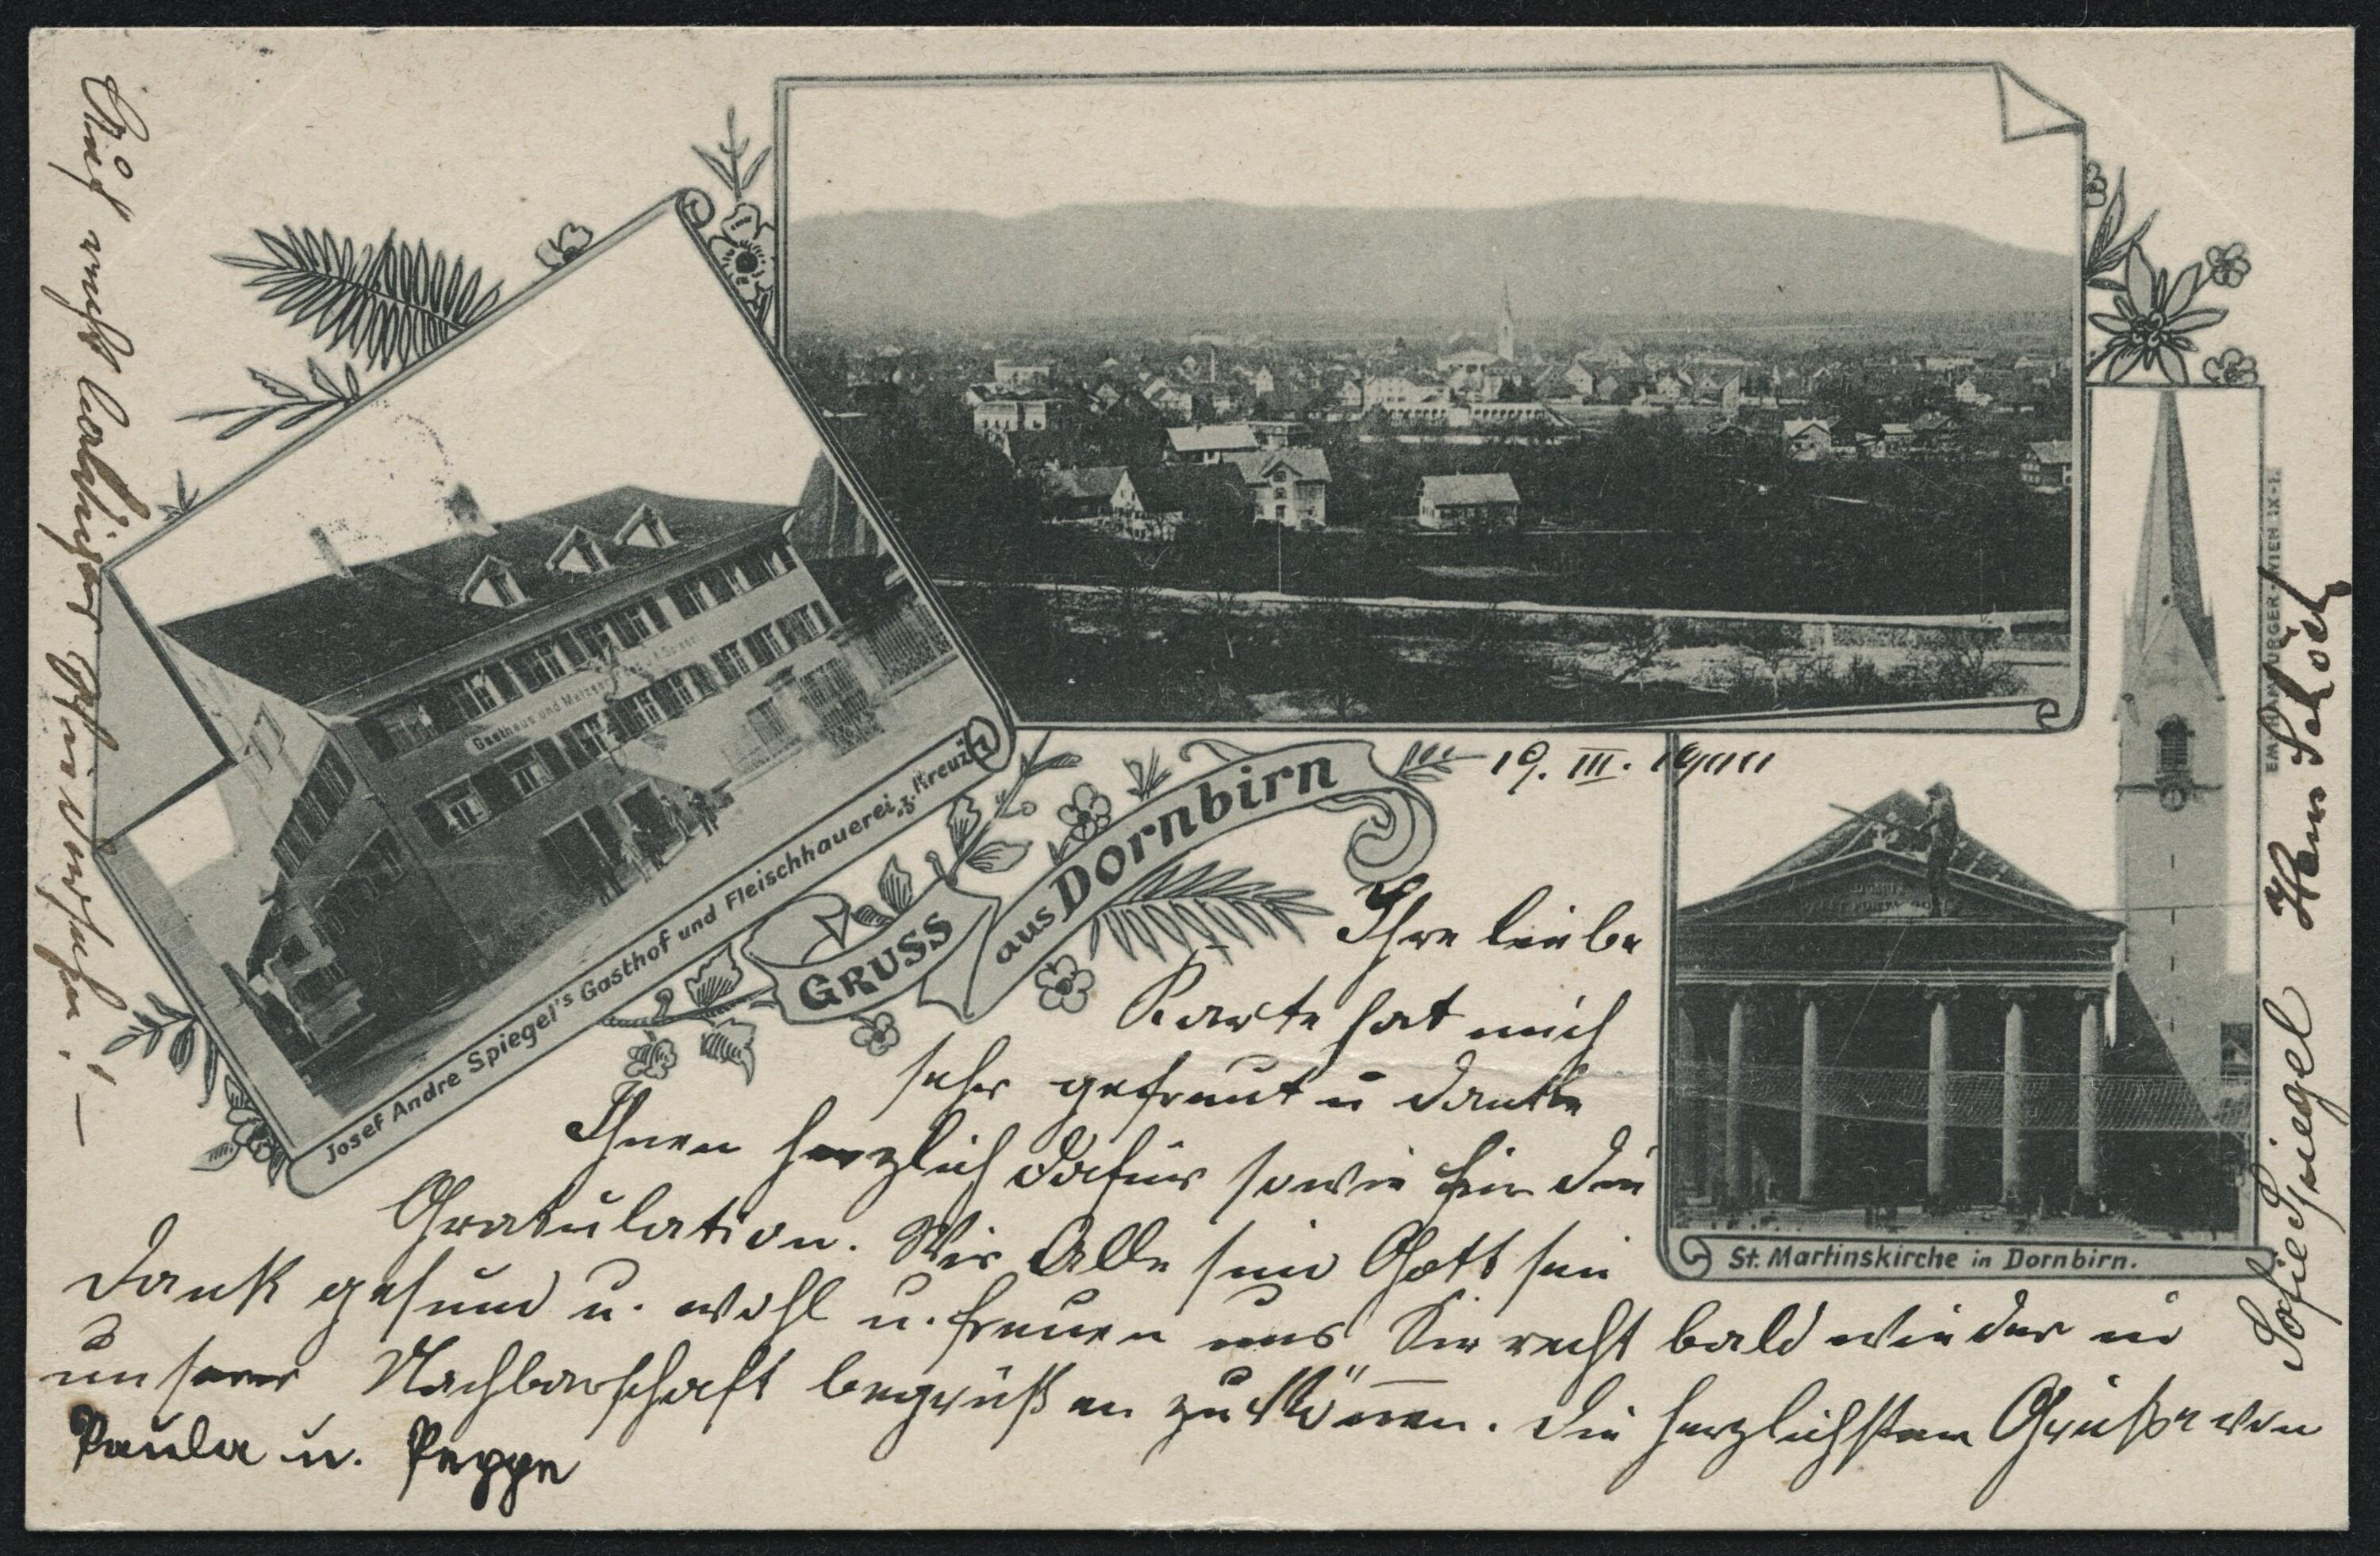 GRUSS aus Dornbirn
Josef Andre Spiegel's Gasthof und Fleischhauerei „z. Kreuz“
Gasthaus und Metzgerei
St. Martinskirche in Dornbirn.
19. III. 1900
Ihre liebe
Karte hat mich
sehr gefreut u danke
Ihnen herzlich dafür sowie für die
Gratulation. Wir Alle sein Gott sei
Dank gesund u. wohl u. freuen uns Sie recht bald wieder in
unserer Nachbarschaft begrüßen zu können. Die herzlichsten Grüße von
Paula u. Peppe
Sofie Spiegel
recht baldiges Wiedersehen! –